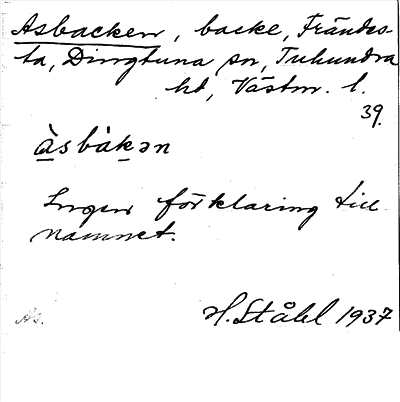 Asbacken, backe, Frändes-
ta, Dingtuna sn, Tuhundra
hd, Västm. l.
39.
àsbàkən
Ingen förklaring till
namnet.
As. H. Ståhl 1937